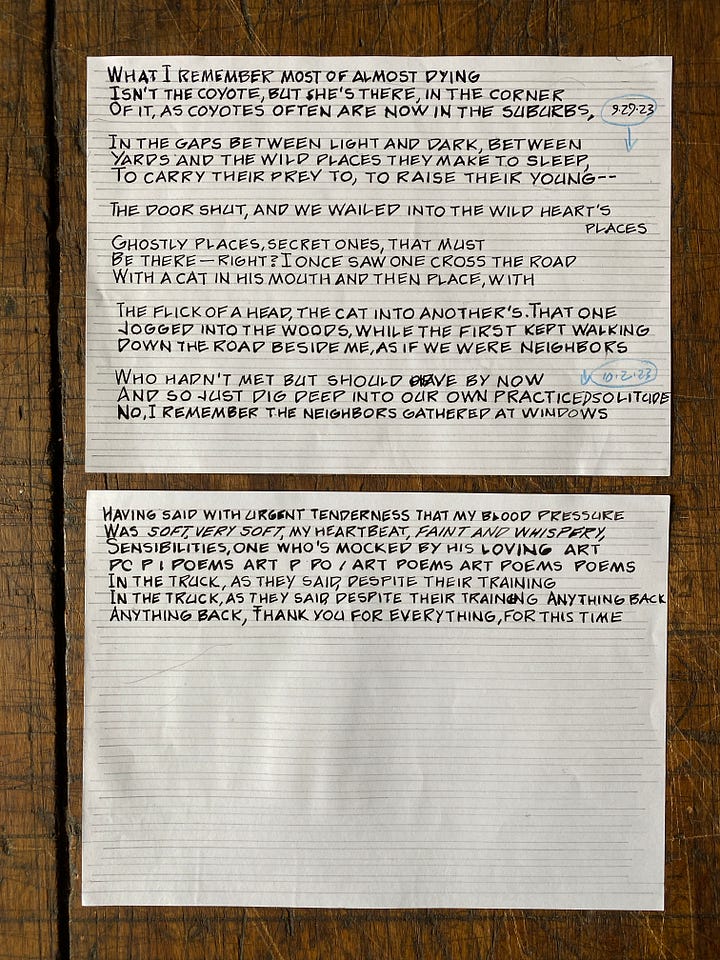 WHAT I REMEMBER MOST OF ALMOST DYING
ISN'T THE COYOTE, BUT SHE'S THERE, IN THE CORNER
OF IT, AS COYOTES OFTEN ARE NOW IN THE SUBURBS, 9.29.23
IN THE GAPS BETWEEN LIGHT AND DARK, BETWEEN
YARDS AND THE WILD PLACES THEY MAKE TO SLEEP,
TO CARRY THEIR PREY TO, TO RAISE THEIR YOUNG--
THE DOOR SHUT, AND WE WAILED INTO THE WILD HEART'S
PLACES
GHOSTLY PLACES, SECRET ONES, THAT MUST
BE THERE—RIGHT? I ONCE SAW ONE CROSS THE ROAD
WITH A CAT IN HIS MOUTH AND THEN PLACE, WITH
THE FLICK OF A HEAD, THE CAT INTO ANOTHER'S. THAT ONE
JOGGED INTO THE WOODS, WHILE THE FIRST KEPT WALKING
DOWN THE ROAD BESIDE ME, AS IF WE WERE NEIGHBORS
WHO HADN'T MET BUT SHOULD HAVE BY NOW 10.2.23
AND SO JUST DIG DEEP INTO OUR OWN PRACTICED SOLITUDE
NO, I REMEMBER THE NEIGHBORS GATHERED AT WINDOWS
HAVING SAID WITH URGENT TENDERNESS THAT MY BLOOD PRESSURE
WAS SOFT, VERY SOFT, MY HEARTBEAT, FAINT AND WHISPERY,
SENSIBILITIES, ONE WHO'S MOCKED BY HIS LOVING ART
PC P I POEMS ART P PO / ART POEMS ART POEMS POEMS
IN THE TRUCK, AS THEY SAID, DESPITE THEIR TRAINING
IN THE TRUCK, AS THEY SAID, DESPITE THEIR TRAINING ANYTHING BACK
ANYTHING BACK, THANK YOU FOR EVERYTHING, FOR THIS TIME